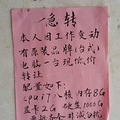 急转
本人因工作变动
有原装品牌(台式)
电脑一台现低价
转让
配置如下:
cpu i7 八核 内存8G
显卡2G 硬盘1000G